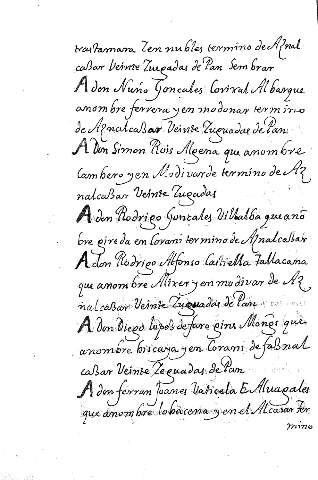 trastamara Zen nubles termino de Aznal
caßar Veinte Zugadas de Pan Sembrar
A don Nuño Gonçales Coriral Albarque
anombre ferrera y en modonar termino
de Aznalcaßar Veinte Zuguadas de Pan
A Don Simon Rois Algena que anombre
Cambero y en Modivar de termino de Az
nalcaßar Veinte Zugadas
A don Rodrigo Gonzales Villalba que anō
bre gireda en Corani termino de Aznalcaßar
A don Rodrigo Alfonso Castiella Fallacana
que anombre Mirer y en modivar de Az
nalcaßar Veinte Zuguadas de Pan
A Don Diego lopes de faro gins Moños que
anombre biscaya y en Corani de faßnal
caßar Veinte Zeguadas de Pan
A don ferran Yoanes Vaticela E Aluagales
que anombre lobacena y en el Alcasar ter
mino